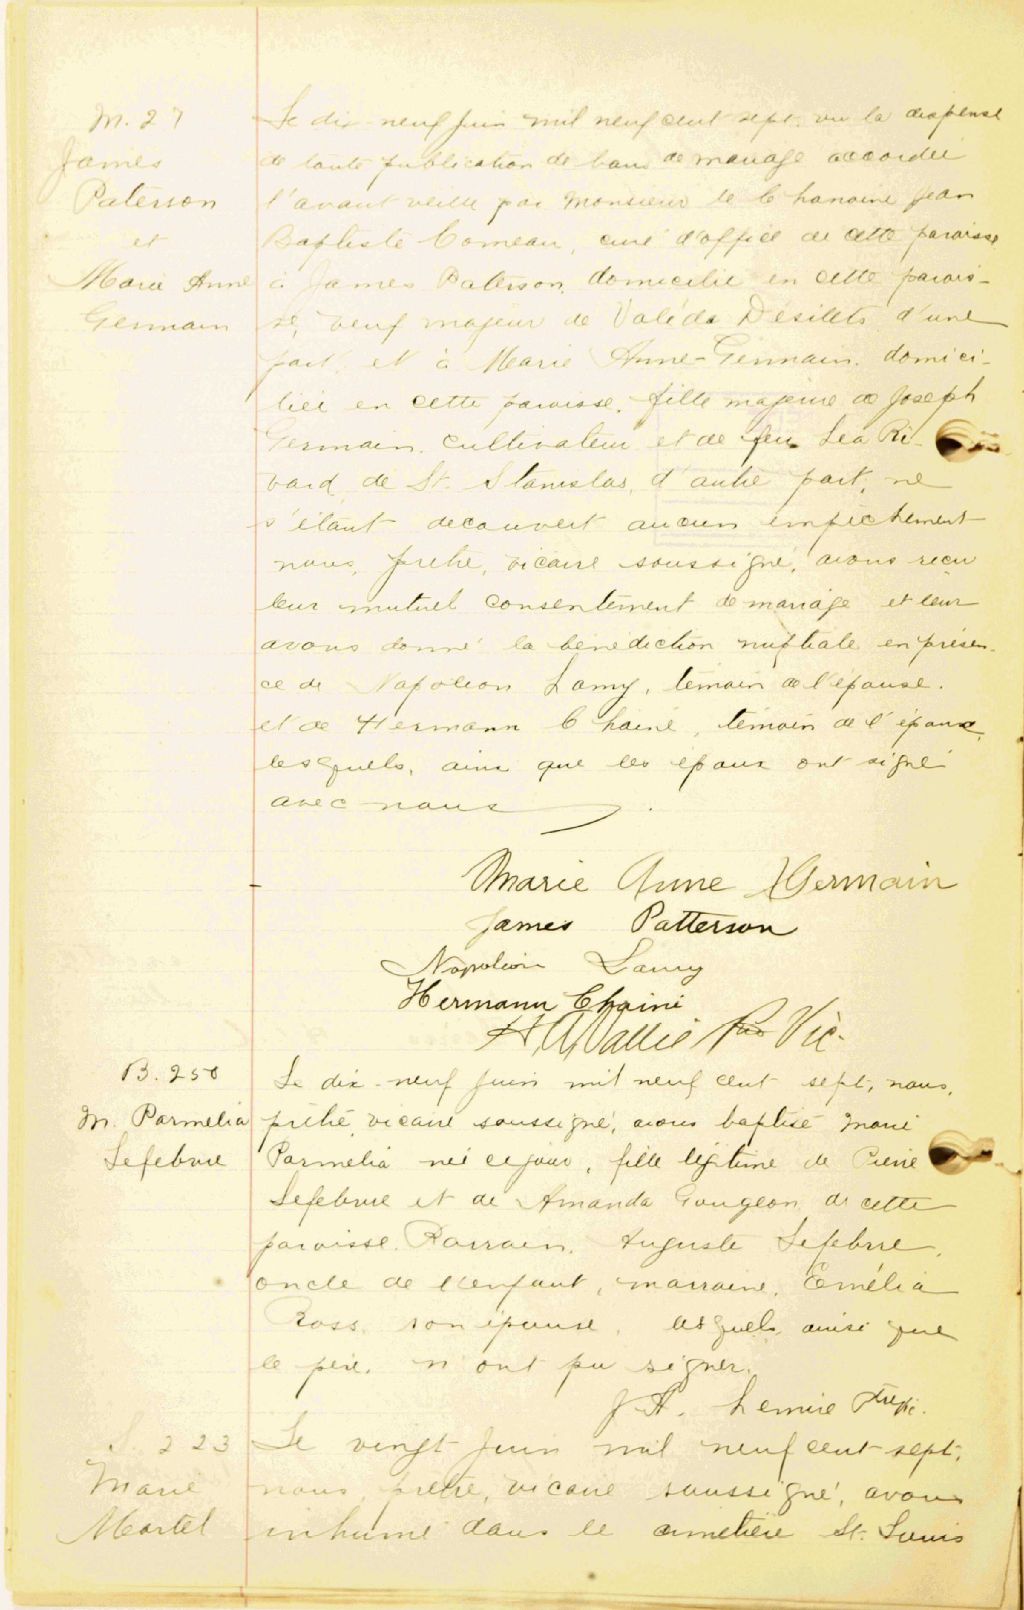 M. 27
James
Paterson
et
Marie Anne
Germain
Le dix-neuf juin mil neuf cent sept, vu la dispense
de toute publication de bans de mariage accordée
l'avant veille par Monsieur le Chanoine Jean
Baptiste Comeau, curé d'office de cette paroisse
à James Paterson, domicilié en cette parois-
se, veuf majeur de Valéda Désilets d'une
part, et à Marie Anne-Germain, domici-
liée en cette paroisse, fille majeure de Joseph
Germain, cultivateur et de feu Léa Ri-
vard, de St. Stanislas, d'autre part, ne
s'étant découvert aucun empêchement
nous, prêtre, vicaire soussigné, avons reçu
leur mutuel consentement de mariage et leur
avons donné la bénédiction nuptiale en présen-
ce de Napoléon Lamy, témoin de l'épouse.
et de Hermann Chainé, témoin de l'époux,
lesquels, ainsi que les époux ont signé
avec nous
Marie Anne Germain
James Patterson
Napoléon Lamy
Hermann Chainé
Ptre Vic.
B. 250
M. Parmelia
Lefebvre
Le dix-neuf juin mil neuf cent sept, nous,
prêtre, vicaire soussigné, avons baptisé Marie
Parmelia née ce jour, fille légitime de Pierre
Lefebvre et de Amanda Gougeon de cette
paroisse. Parrain, Auguste Lefebvre,
oncle de l'enfant, marraine, Emélia
Ross, son épouse, lesquels, ainsi que
le père, n'ont pu signer.
J. A. Lemire
S. 223
Marie
Martel
Le vingt juin mil neuf cent sept,
nous, prêtre, vicaire soussigné, avons
inhumé dans le cimetière St. Louis